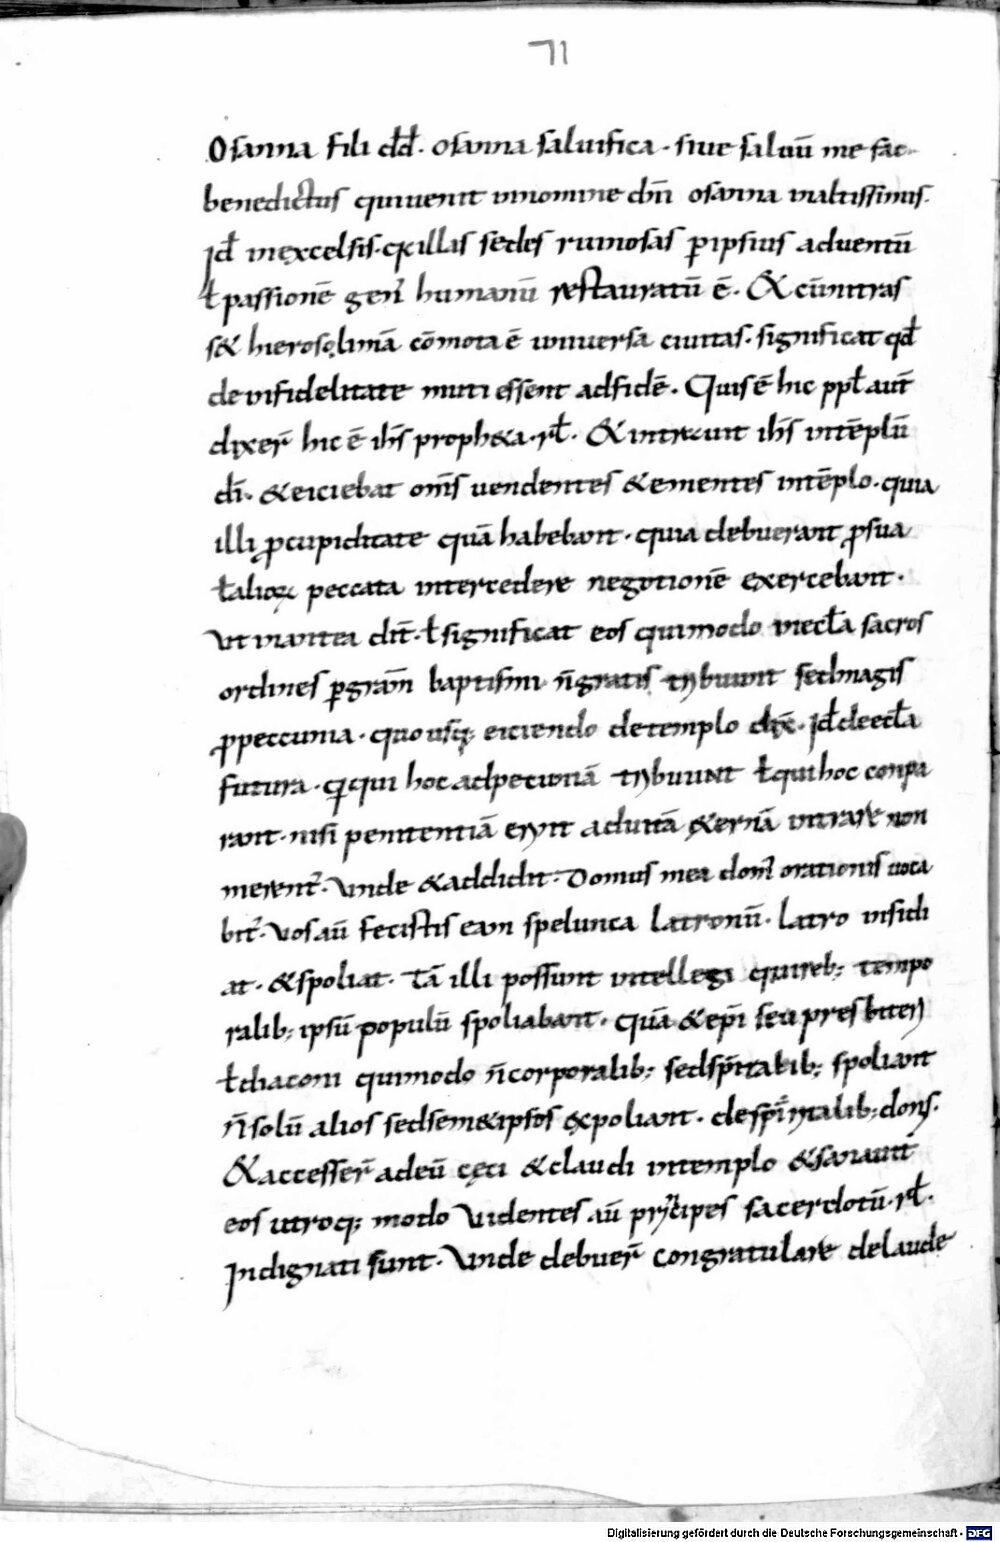 71
Osanna fili dd̄. osanna saluifica. siue saluū me fac
benedictus quiuenit innomine dn̄i osanna inaltissimis.
Id̄ inexcelsis. q illas sedes ruinosas ꝑipsius aduentū
ł passionē gen̄ humanū restauratū ē. & cū intras
s& hierosolimā cōmota ē uniuersa ciuitas. significat qd̄
de infidelitate muti essent adfidē. Quis ē hic ppl̄ aut̄
dixer̄ hic ē ih̄s proph&a. rł. & intrauit ih̄s intēplū
dī. & eiciebat om̄s uendentes & ementes intēplo. quia
illi ꝓcupiditate quā habebant. quia debuerant ꝓsua
ł alioꝝ peccata intercedere negotionē exercebant.
Vt inantea dix̄. ł significat eos quimodo inecl̄a sacros
ordines ꝑgrām baptismi n̄ gratis tribuunt sedmagis
ꝓpeccunia. quo usq; eiciendo detemplo dix̄. Id̄ deecl̄a
futura. q qui hoc adpecuniā tribuunt ł qui hoc conpa
rant. nisi penitentiā erint aduitā &ernā intrare non
merent̄. Vnde & addidit. Domus mea dom̄ orationis uoca
bit̄. Vos aū fecistis eam spelunca latronū. Latro insidi
at. & spoliat. Tā illi possunt intellegi quireb; tempo
ralib; ipsū populū spoliabant. quā & epī seu presbiteri
ł diaconi quimodo n̄ corporalib; sed spīritalib; spoliant
n̄ solū alios sedsem&ipsos expoliant. de spīritalib; donis.
& accesser̄ adeū cęci & claudi intemplo & sanauit
eos utroq; modo Videntes aū principes sacerdotū. rł.
Indignati sunt. Vnde debuer̄ congratulare delaude
Digitalisierung gefördert durch die Deutsche Forschungsgemeinschaft - DFG